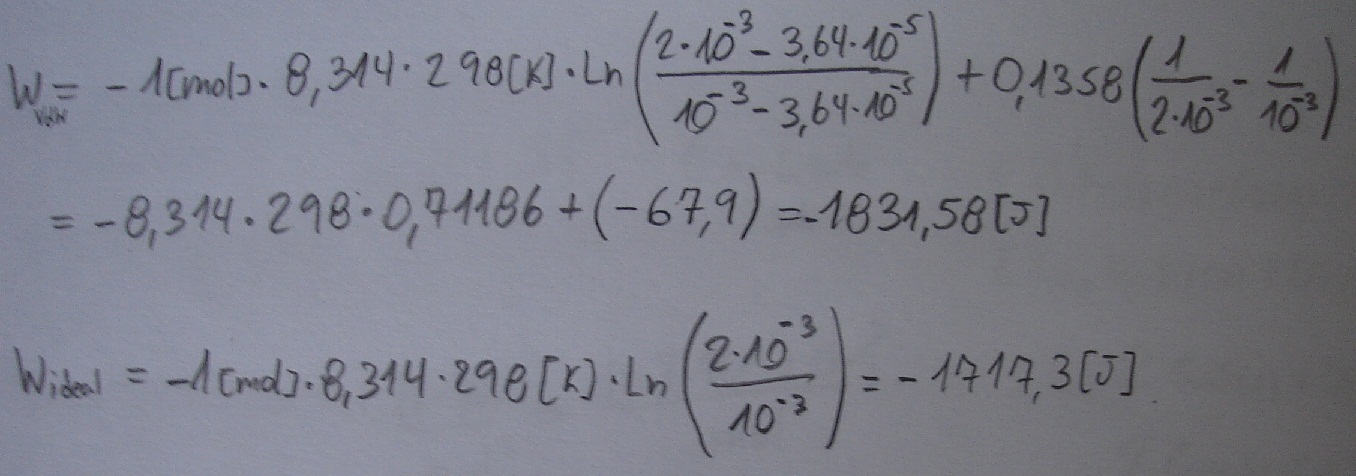 W_VdW = -1[mol]·8,314·298[K]·Ln((2·10^-3 - 3,64·10^-5)/(10^-3 - 3,64·10^-5)) + 0,1358(1/(2·10^-3) - 1/(10^-3))
= -8,314·298·0,71186 + (-67,9) = -1831,58[J]
W_ideal = -1[mol]·8,314·298[K]·Ln((2·10^-3)/(10^-3)) = -1717,3[J]